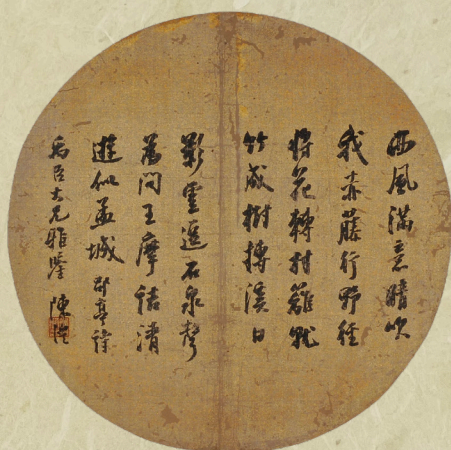 西風滿意晴吹
我赤藤行野徑
將花轉村籬就
竹成樹摶溪日
影雲邊石泉聲
為問王摩詰清
遊似孟城 郘亭詩
禹臣大兄雅鑒 陳